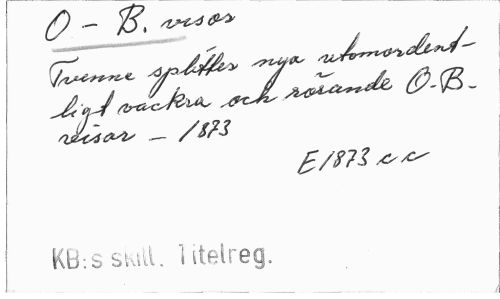 O - B. visor
Tvenne splitter nya utomordent-
ligt vackra och rörande O.B.-
visor - 1873
E1873 c c
KB:s skill. Titelreg.